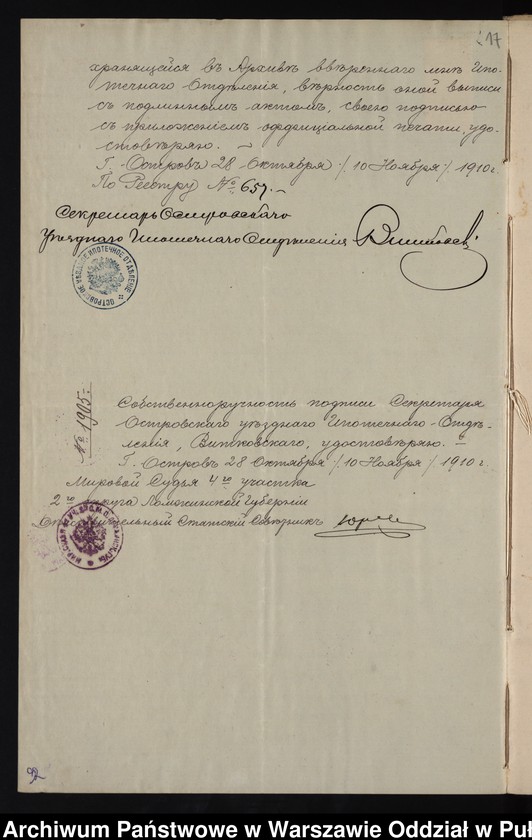 17
хранящейся въ Архивѣ ввѣреннаго мнѣ Ипо-
течнаго Отдѣленія, вѣрность оной выписи
съ подлиннымъ актомъ, своею подписью
съ приложеніемъ оффиціальной печати, удо-
стовѣряю.
Г. Островъ 28 Октября /10 Ноября/ 1910 г.
По Реестру № 657.
Секретарь Островскаго
Уѣзднаго Ипотечнаго Отдѣленія
ОСТРОВСКОЕ УѢЗДНОЕ ИПОТЕЧНОЕ ОТДѢЛЕНІЕ
№ 1905
Собственноручность подписи Секретаря
Островскаго уѣзднаго Ипотечнаго Отдѣ-
ленія, Витковскаго, удостовѣряю.
Г. Островъ 28 Октября /10 Ноября/ 1910 г.
Мировой Судья 4го участка
2го округа Ломжинской Губерніи
Статскій Совѣтникъ
92
Archiwum Państwowe w Warszawie Oddział w Puł